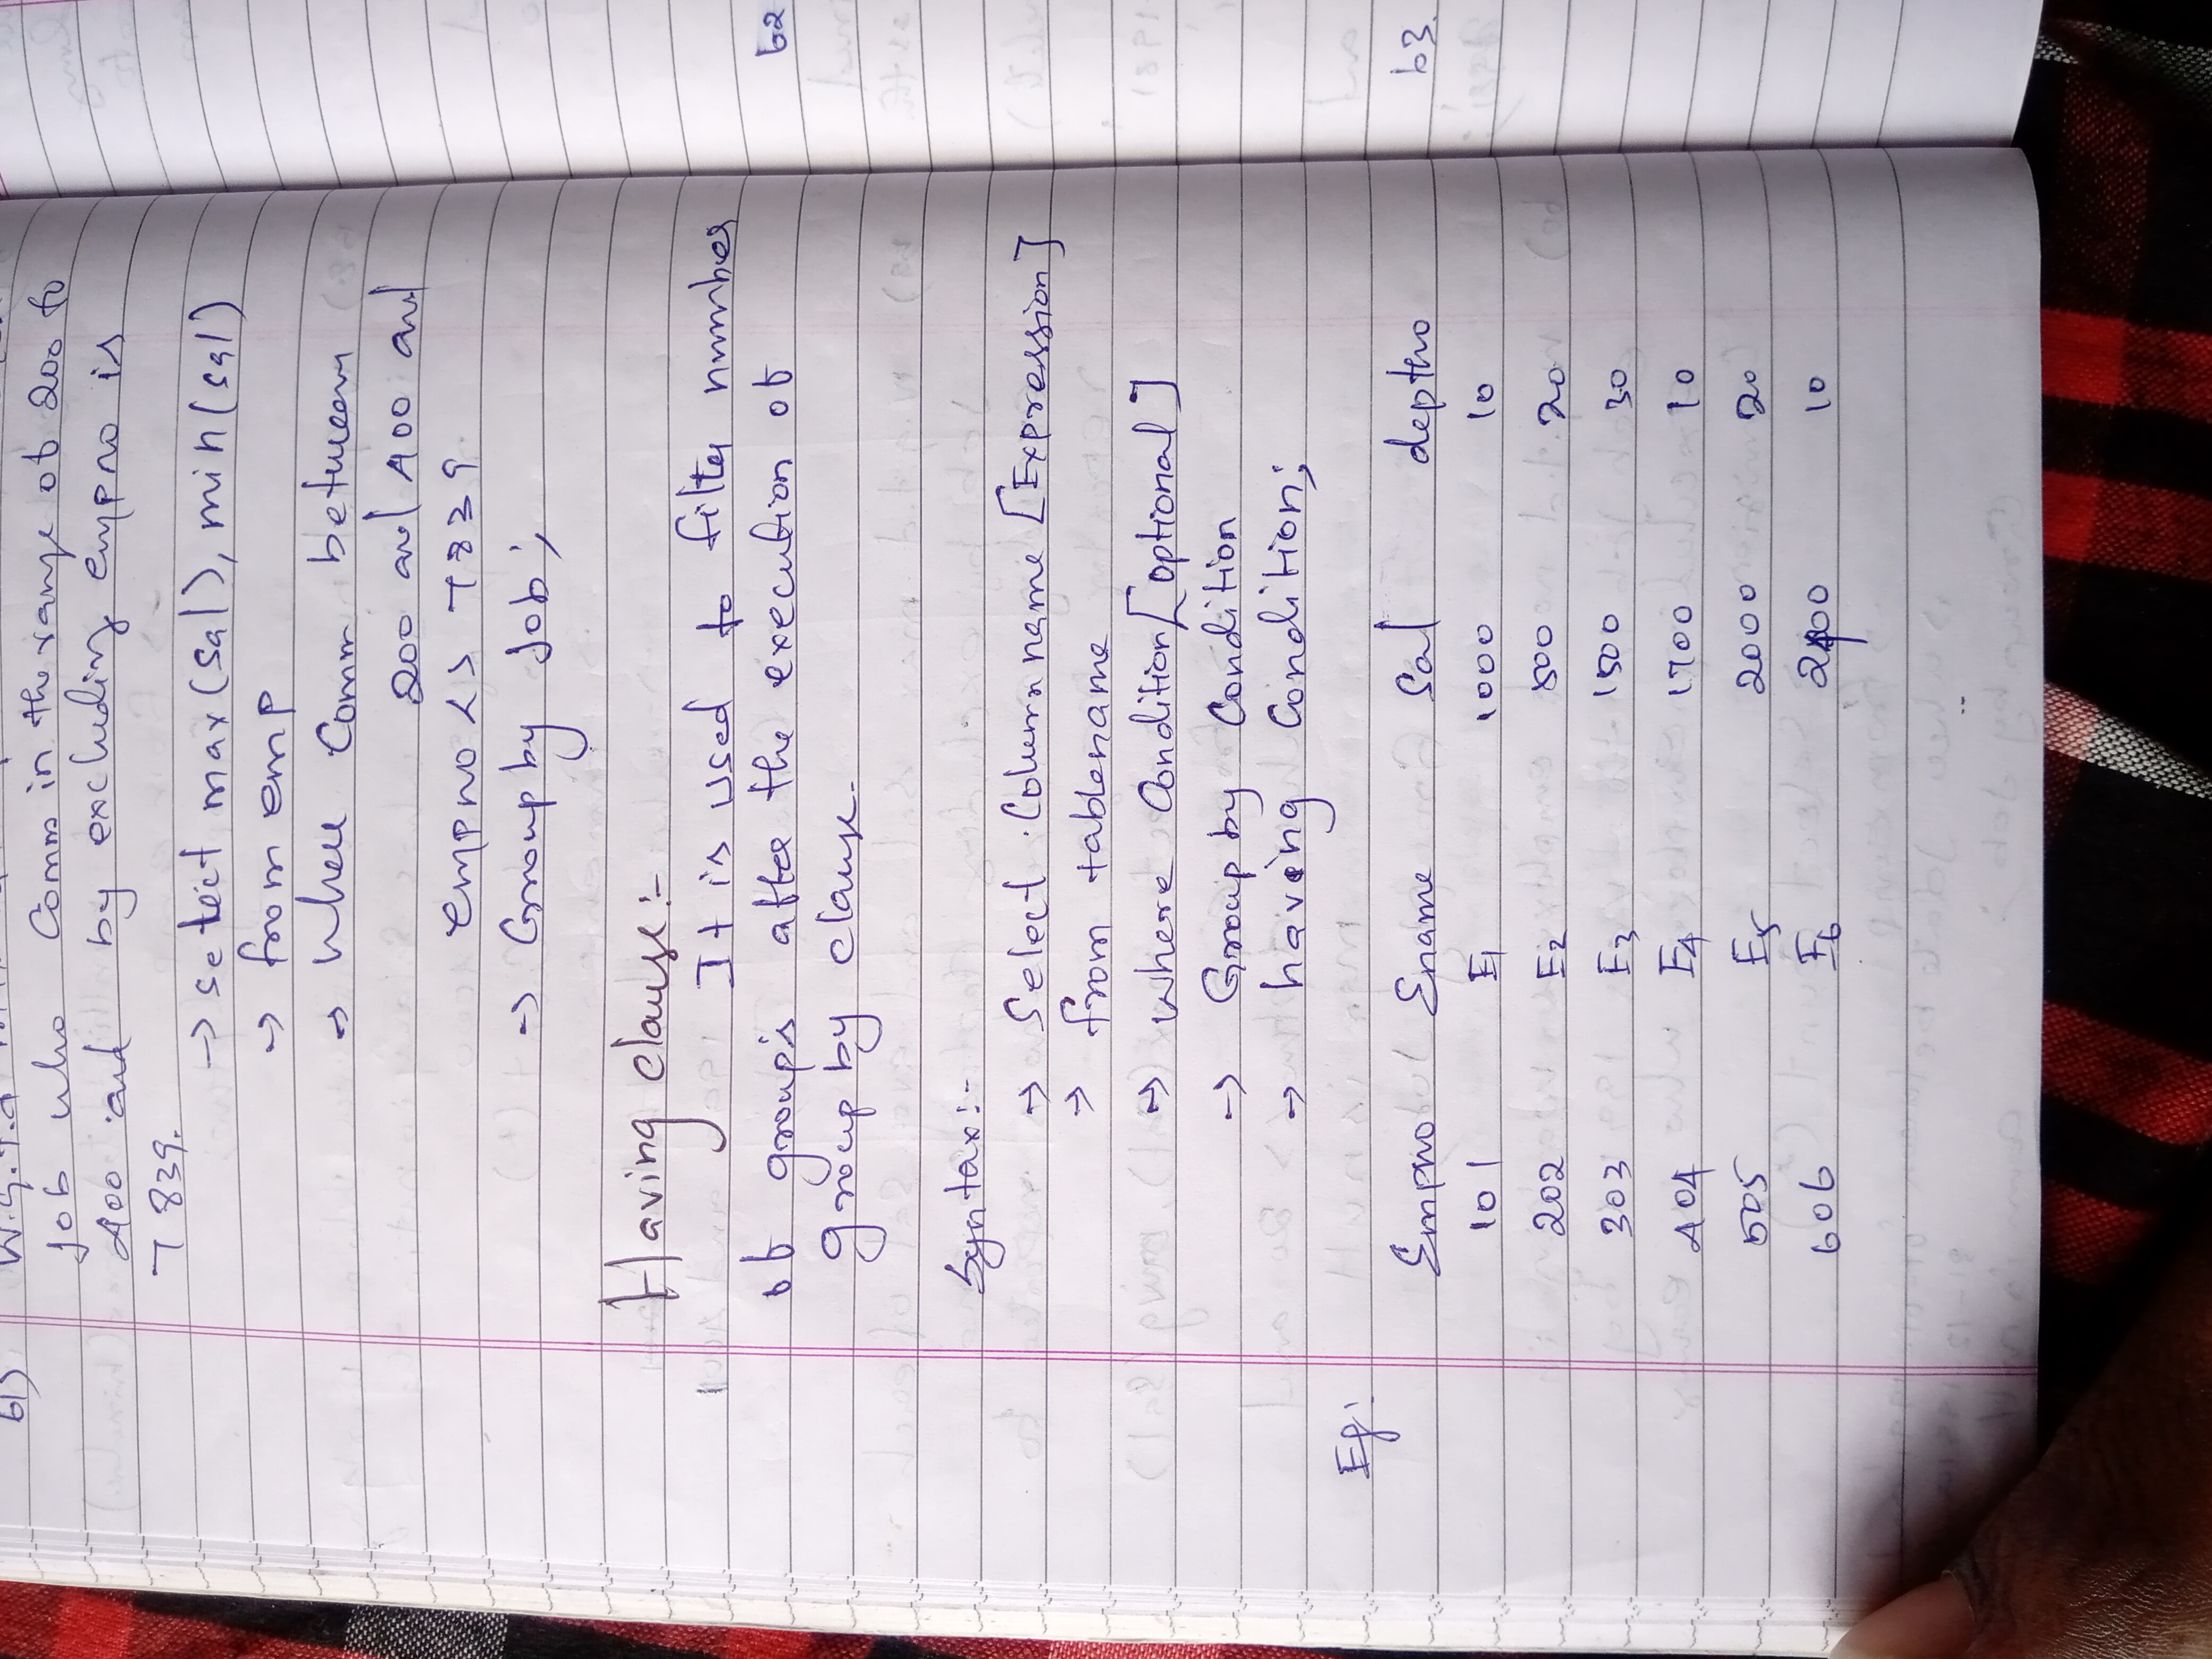 61) W.q.t.d
job who comm in the range of 200 to
400 and by excluding empno is
7839.
→ select max(sal), min(sal)
→ from emp
→ where comm between
200 and 400 and
empno <> 7839
→ Group by job;
Having clause:-
It is used to filter number
of groups after the execution of
group by clause.
Syntax:-
→ Select Column name [Expression]
→ from tablename
→ where Condition [optional]
→ Group by Condition
→ having Condition;
Eg:
Empno Ename Sal deptno
101 E1 1000 10
202 E2 800 20
303 E3 1500 30
404 E4 1700 10
505 E5 2000 20
606 E6 2400 10
62
63.